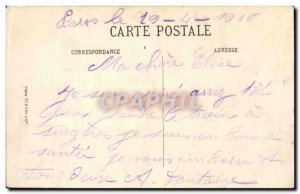 Paris le 19-4-1916
CARTE POSTALE
CORRESPONDANCE
ADRESSE
Ma chère Elise
je suis assez tôt
pour prendre le train à
je suis en bonne
santé je vous embrasse
tous deux A. Fontaine